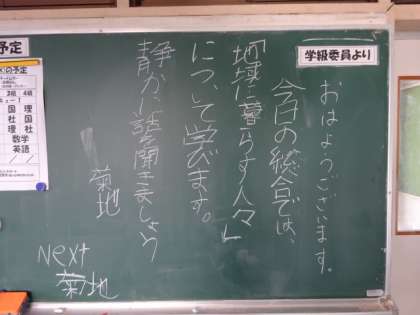 学級委員より
おはようございます。
今日の総合では、
「地球に暮らす人々」
について学びます。
静かに話を聞きましょう
菊地
Next
菊地
予定
の予定
3組 4組
国 理
社 国
理 社
数学
英語